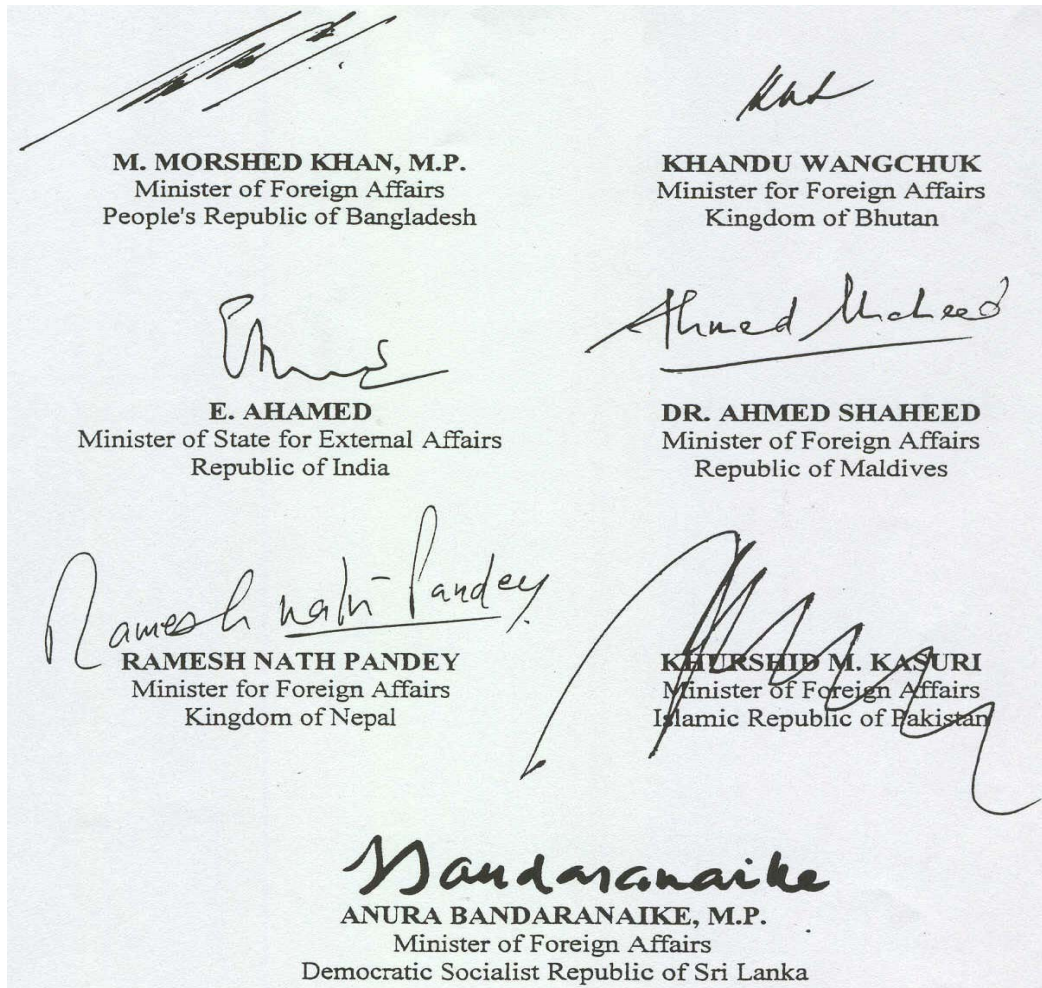 M. MORSHED KHAN, M.P.
Minister of Foreign Affairs
People's Republic of Bangladesh
KHANDU WANGCHUK
Minister for Foreign Affairs
Kingdom of Bhutan
E. AHAMED
Minister of State for External Affairs
Republic of India
Ahmed Shaheed
DR. AHMED SHAHEED
Minister of Foreign Affairs
Republic of Maldives
Ramesh nath Pandey
RAMESH NATH PANDEY
Minister for Foreign Affairs
Kingdom of Nepal
KHURSHID M. KASURI
Minister of Foreign Affairs
Islamic Republic of Pakistan
Bandaranaike
ANURA BANDARANAIKE, M.P.
Minister of Foreign Affairs
Democratic Socialist Republic of Sri Lanka